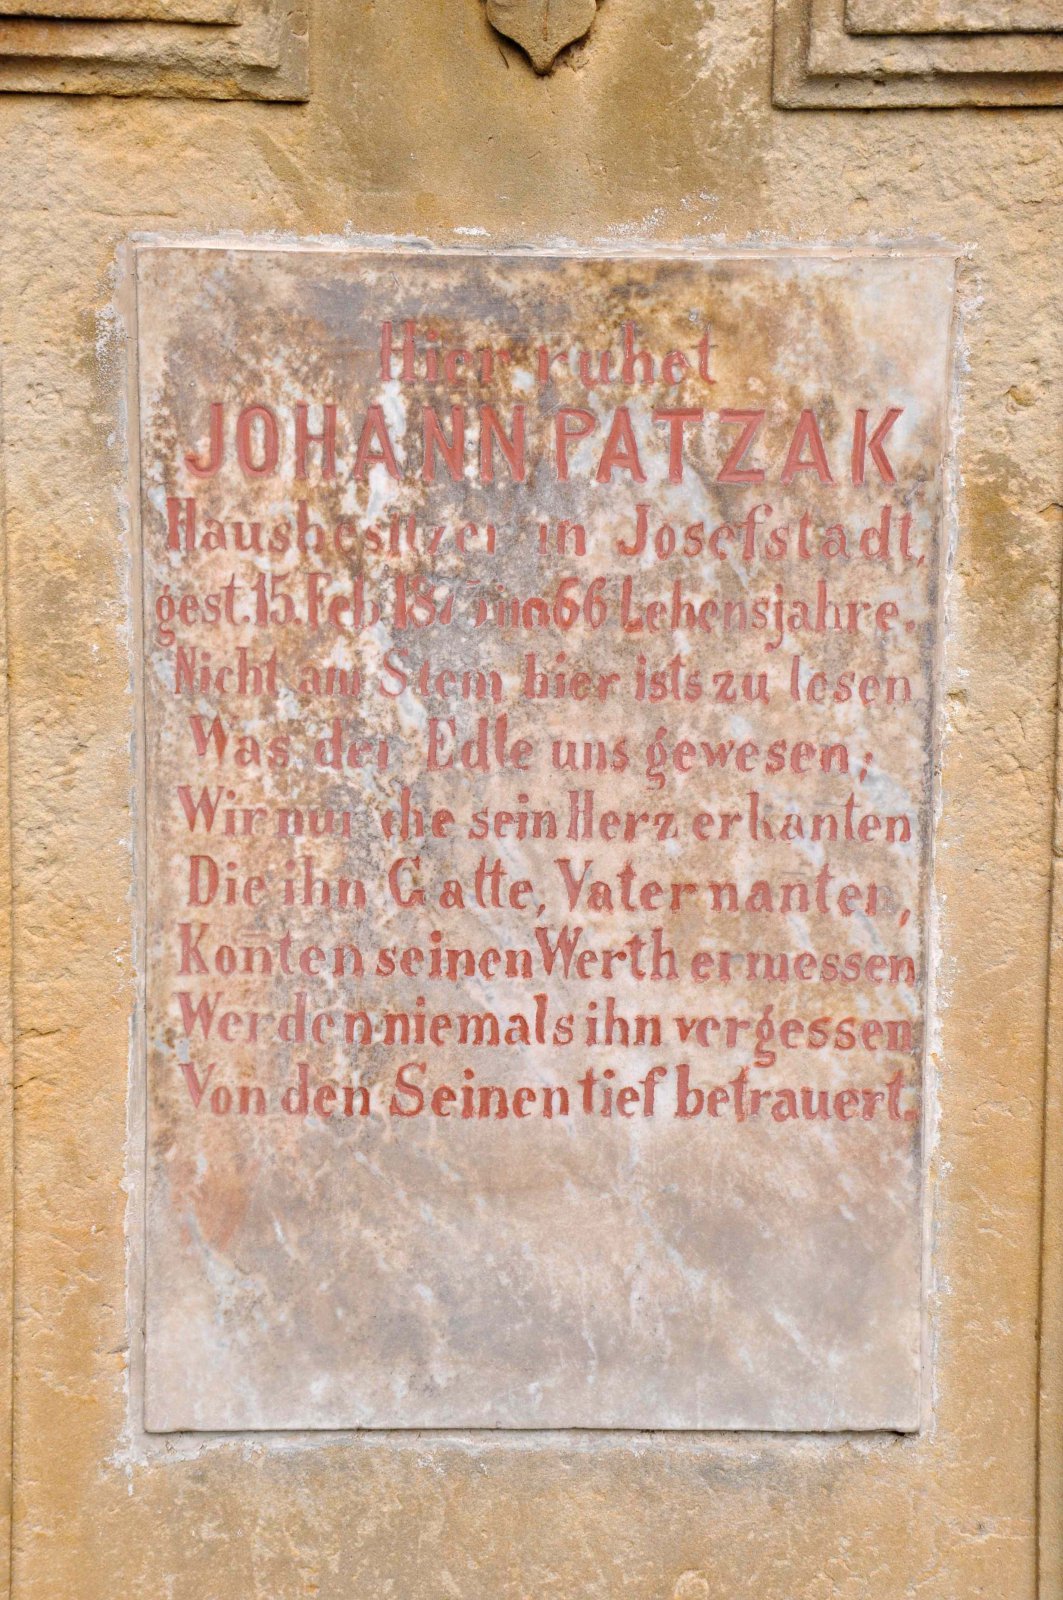 Hier ruhet
JOHANN PATZAK
Hausbesitzer in Josefstadt,
gest. 15. Feb. 1875 im 66 Lebensjahre.
Nicht am Stem hier ists zu lesen
Was der Edle uns gewesen;
Wir nur die sein Herz erkanten
Die ihn Gatte, Vater nanten,
Koñten seinen Werth ermessen
Werden niemals ihn vergessen
Von den Seinen tief betrauert.